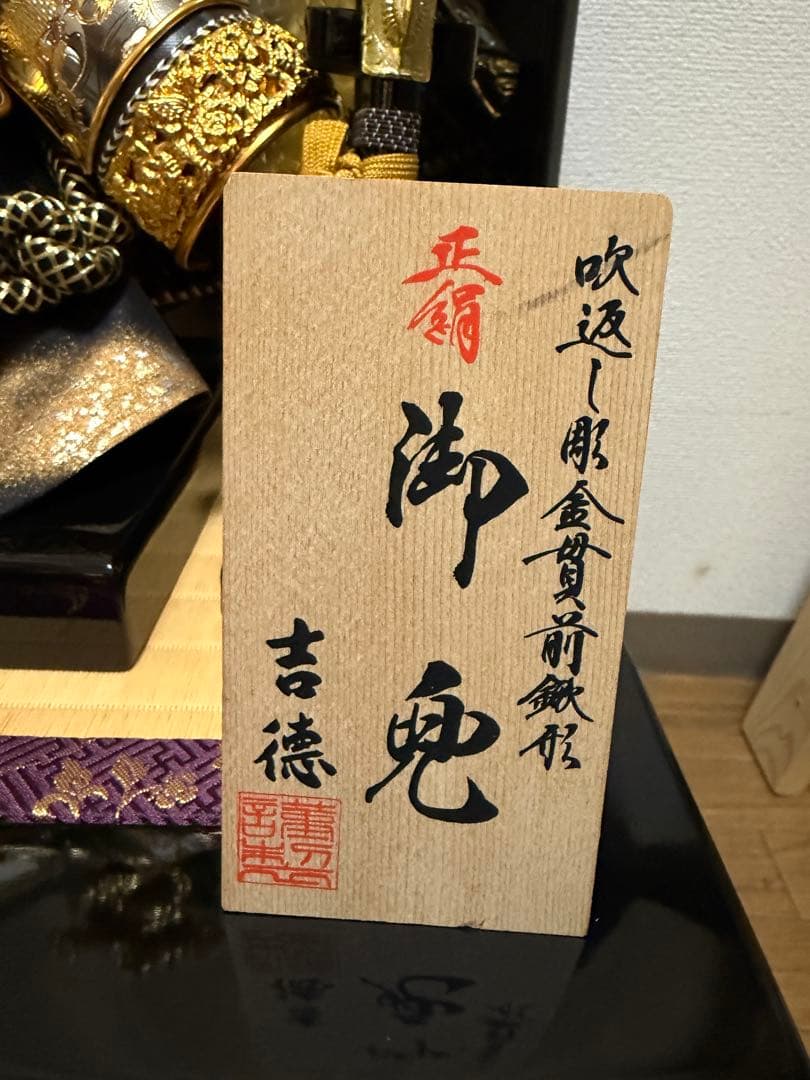 吹返し彫金貫前鍬形
正絹
御兜
吉德